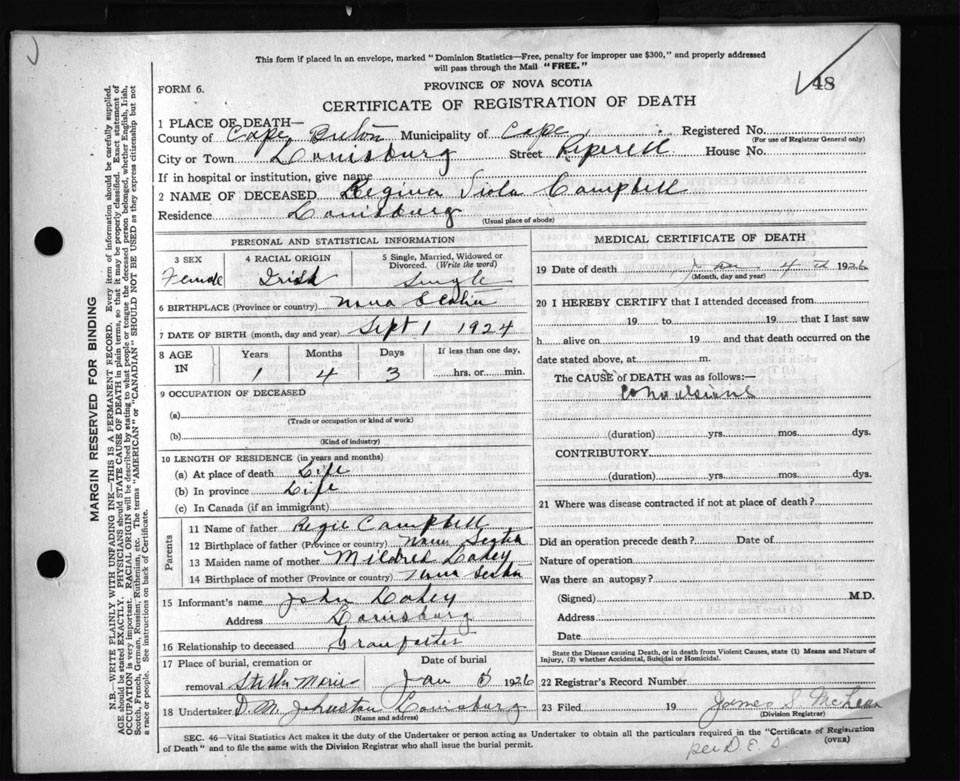 This form if placed in an envelope, marked "Dominion Statistics—Free, penalty for improper use $300," and properly addressed
will pass through the Mail "FREE."
48
FORM 6.
PROVINCE OF NOVA SCOTIA
CERTIFICATE OF REGISTRATION OF DEATH
1 PLACE OF DEATH—
County of Cape Breton Municipality of Cape Registered No.
(For use of Registrar General only)
City or Town Louisburg Street House No.
If in hospital or institution, give name
2 NAME OF DECEASED Regina Viola Campbell
Residence Louisburg
(Usual place of abode)
PERSONAL AND STATISTICAL INFORMATION
3 SEX 4 RACIAL ORIGIN 5 Single, Married, Widowed or Divorced. (Write the word)
Female Irish Single
6 BIRTHPLACE (Province or country) Nova Scotia
7 DATE OF BIRTH (month, day and year) Sept 1 1924
8 AGE IN Years Months Days If less than one day,
1 4 3 hrs. or min.
9 OCCUPATION OF DECEASED
(a)
(Trade or occupation or kind of work)
(b)
(Kind of industry)
10 LENGTH OF RESIDENCE (in years and months)
(a) At place of death Life
(b) In province Life
(c) In Canada (if an immigrant)
Parents
11 Name of father Regie Campbell
12 Birthplace of father (Province or country) Nova Scotia
13 Maiden name of mother Mildred Lahey
14 Birthplace of mother (Province or country) Nova Scotia
15 Informant's name John Lahey
Address Louisburg
16 Relationship to deceased Granfather
17 Place of burial, cremation or removal Stella Maris
Date of burial
Jan 5 1926
18 Undertaker D. M. Johnston Louisburg
(Name and address)
MEDICAL CERTIFICATE OF DEATH
19 Date of death Jan 4 th 1926
(Month, day and year)
20 I HEREBY CERTIFY that I attended deceased from
19 to 19 that I last saw
h alive on 19 and that death occurred on the
date stated above, at m.
The CAUSE of DEATH was as follows:—
Convulsions
(duration) yrs. mos. dys.
CONTRIBUTORY
(duration) yrs. mos. dys.
21 Where was disease contracted if not at place of death?
Did an operation precede death? Date of
Nature of operation
Was there an autopsy?
(Signed) M.D.
Address
Date
State the Disease causing Death, or in death from Violent Causes, state (1) Means and Nature of
Injury, (2) whether Accidental, Suicidal or Homicidal.
22 Registrar's Record Number
23 Filed 19 James S. McLean
(Division Registrar)
per D. E. S.
SEC. 46—Vital Statistics Act makes it the duty of the Undertaker or person acting as Undertaker to obtain all the particulars required in the "Certificate of Registration
of Death" and to file the same with the Division Registrar who shall issue the burial permit.
(OVER)
MARGIN RESERVED FOR BINDING
N.B.—WRITE PLAINLY WITH UNFADING INK—THIS IS A PERMANENT RECORD. Every item of information should be carefully supplied.
AGE should be stated EXACTLY. PHYSICIANS should STATE CAUSE OF DEATH in plain terms, so that it may be properly classified. Exact statement of
OCCUPATION is very important. RACIAL ORIGIN will be described by stating to what people or tongue the deceased person belonged, whether English, Irish,
Scotch, French, German, Russian, Ruthenian, etc. The terms "AMERICAN" or "CANADIAN" SHOULD NOT BE USED as they express citizenship but not
a race or people. See instructions on back of Certificate.